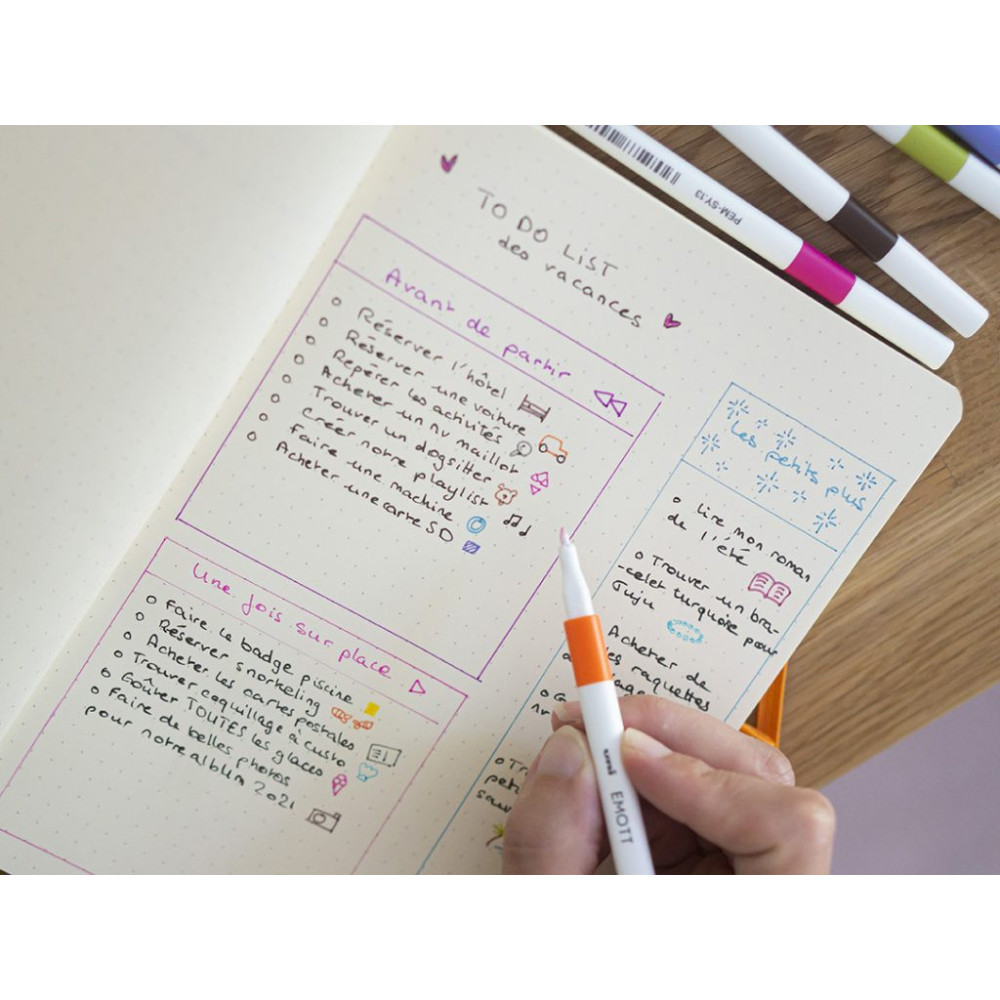 TO DO LIST
des vacances
Avant de partir
Réserver l'hôtel
Réserver une voiture
Repérer les activités
Acheter un nv maillot
Trouver un dogsitter
Créer notre playlist
Faire une machine
Acheter une carte SD
Une fois sur place
Faire le badge piscine
Réserver snorkeling
Acheter les cartes postales
Trouver coquillage à custo
Goûter TOUTES les glaces
Faire de belles photos
pour notre album 2021
Les petits plus
Lire mon roman
de l'été
Trouver un bra-
-celet turquoise pour
Juju
Acheter de
raquettes
PEM-SY.13
uni
EMOTT